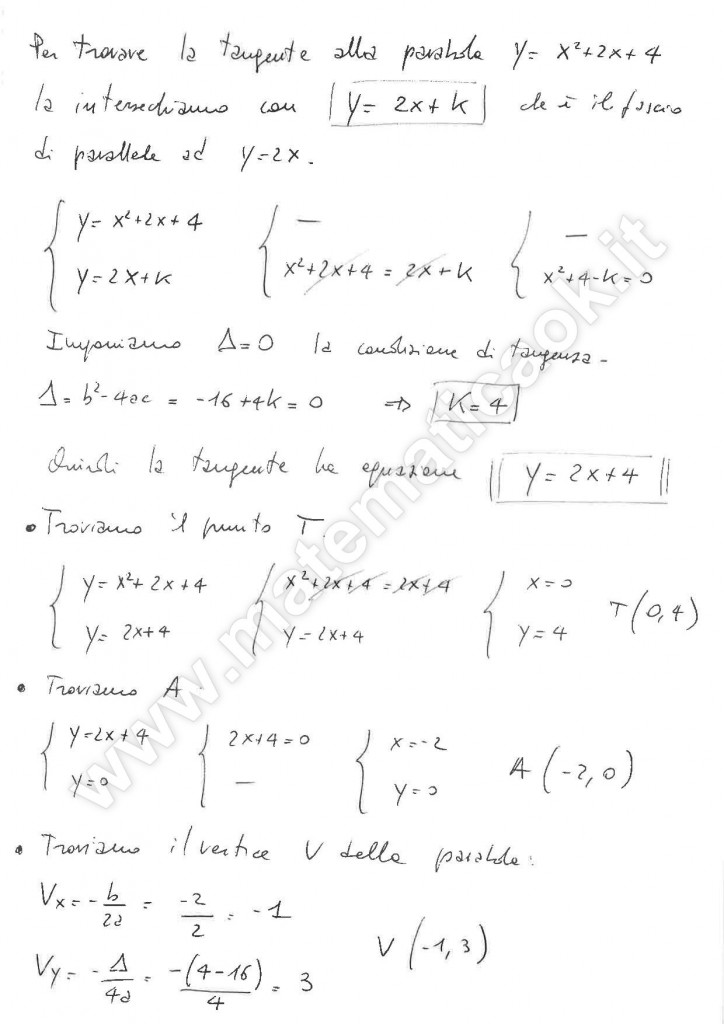 Per trovare la tangente alla parabola y = x²+2x+4
la intersechiamo con | y = 2x+k | che è il fascio
di parallele ad y=2x.
{ y = x²+2x+4 { — { —
{ y = 2x+k { x²+2x+4 = 2x+k { x²+4-k=0
Imponiamo Δ=0 la condizione di tangenza-
Δ = b²-4ac = -16+4k = 0 => | K=4 |
Quindi la tangente ha equazione || y = 2x+4 ||
• Troviamo il punto T.
{ y = x²+2x+4 { x²+2x+4 = 2x+4 { x=0 T(0,4)
{ y = 2x+4 { y = 2x+4 { y=4
• Troviamo A
{ y=2x+4 { 2x+4=0 { x=-2 A(-2,0)
{ y=0 { — { y=0
• Troviamo il vertice V della parabola:
Vx = -b/2a = -2/2 = -1
V(-1,3)
Vy = -Δ/4a = -(4-16)/4 = 3
www.matematicaok.it